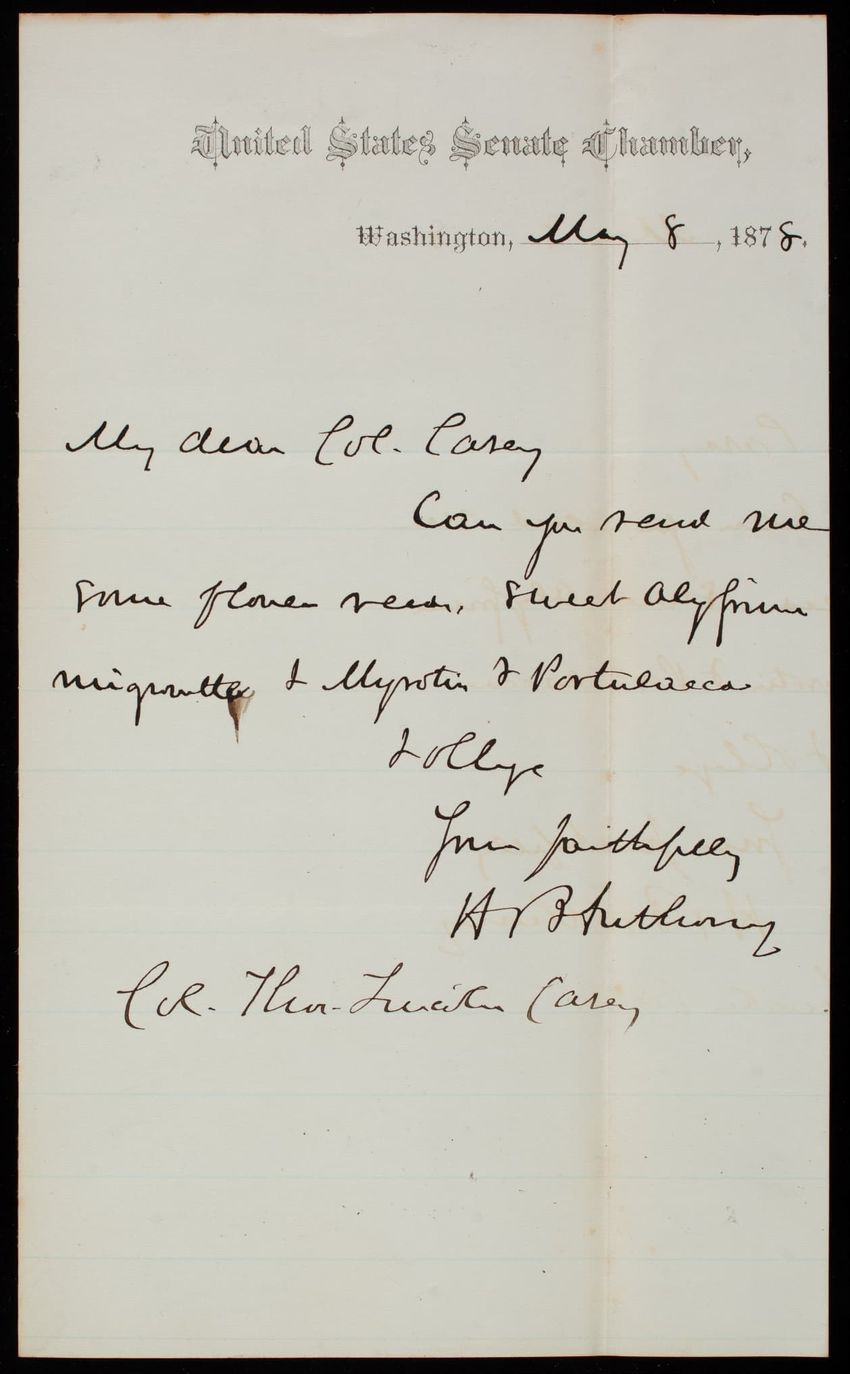 United States Senate Chamber,
Washington, May 8, 1878.
My dear Col. Casey
Can you send me
some flower seeds, sweet Alyssum
mignonette & Myrotis & Portulacca
& oblige
Yours faithfully
H B Anthony
Col. Thos. Lincoln Casey